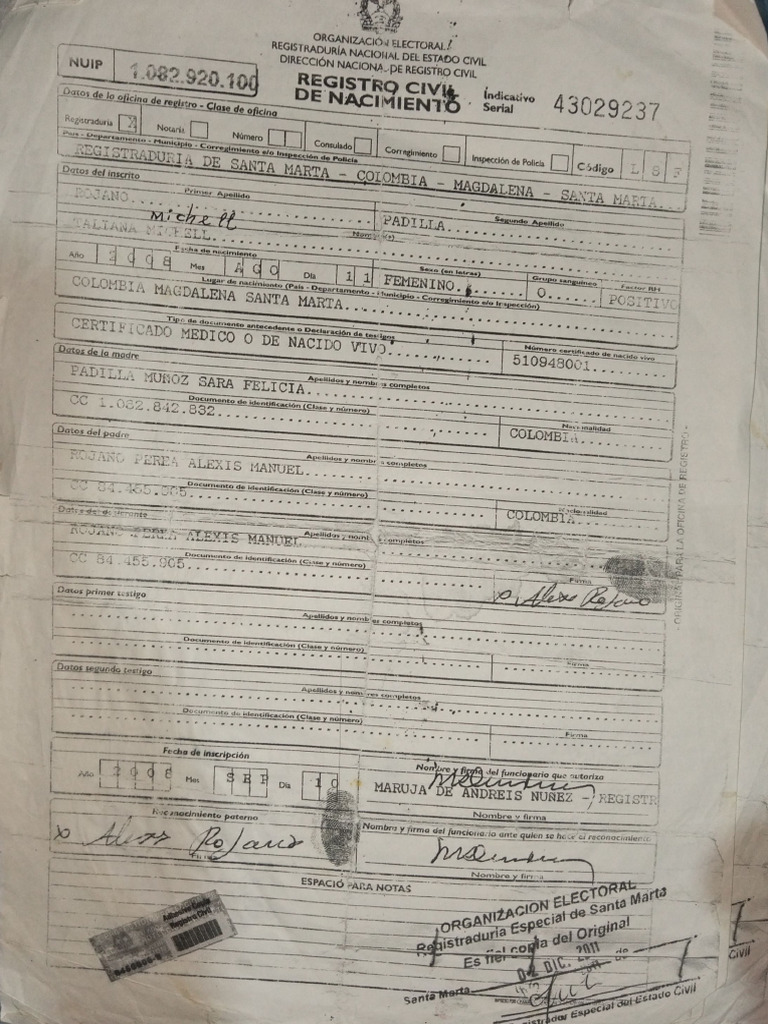 ORGANIZACIÓN ELECTORAL
REGISTRADURÍA NACIONAL DEL ESTADO CIVIL
DIRECCIÓN NACIONAL DE REGISTRO CIVIL
NUIP 1.082.920.100
REGISTRO CIVIL DE NACIMIENTO
Indicativo Serial 43029237
Datos de la oficina de registro - Clase de oficina
Registraduría X Notaría Número Consulado Corregimiento Inspección de Policía Código L S F
País - Departamento - Municipio - Corregimiento e/o Inspección de Policía
REGISTRADURIA DE SANTA MARTA - COLOMBIA - MAGDALENA - SANTA MARTA...
Datos del inscrito
Primer Apellido Segundo Apellido
ROJANO PADILLA
Michell
Nombre(s)
TALIANA MICHELL
Fecha de nacimiento Sexo (en letras) Grupo sanguíneo Factor RH
Año 2008 Mes AGO Día 11 FEMENINO O POSITIVO
Lugar de nacimiento (País - Departamento - Municipio - Corregimiento e/o Inspección)
COLOMBIA MAGDALENA SANTA MARTA
Tipo de documento antecedente o Declaración de testigos Número certificado de nacido vivo
CERTIFICADO MEDICO O DE NACIDO VIVO 510948001
Datos de la madre
Apellidos y nombres completos
PADILLA MUÑOZ SARA FELICIA
Documento de identificación (Clase y número) Nacionalidad
CC 1.082.842.832 COLOMBIA
Datos del padre
Apellidos y nombres completos
ROJANO PEREA ALEXIS MANUEL
Documento de identificación (Clase y número) Nacionalidad
CC 84.455.905 COLOMBIA
Datos del declarante
Apellidos y nombres completos
ROJANO PEREA ALEXIS MANUEL
Documento de identificación (Clase y número) Firma
CC 84.455.905 x Alexs Rojano
Datos primer testigo
Apellidos y nombres completos
Documento de identificación (Clase y número) Firma
Datos segundo testigo
Apellidos y nombres completos
Documento de identificación (Clase y número) Firma
Fecha de inscripción Nombre y firma del funcionario que autoriza
Año 2008 Mes SEP Día 10 MARUJA DE ANDREIS NUÑEZ - REGISTR
Nombre y firma
Reconocimiento paterno Nombre y firma del funcionario ante quien se hace el reconocimiento
x Alexs Rojano
Firma Nombre y firma
ESPACIO PARA NOTAS
ORGANIZACION ELECTORAL
Registraduría Especial de Santa Marta
Es fiel copia del Original
02 DIC. 2011
Santa Marta
Registrador Especial del Estado Civil
Civil
Registro Civil
- ORIGINAL PARA LA OFICINA DE REGISTRO -